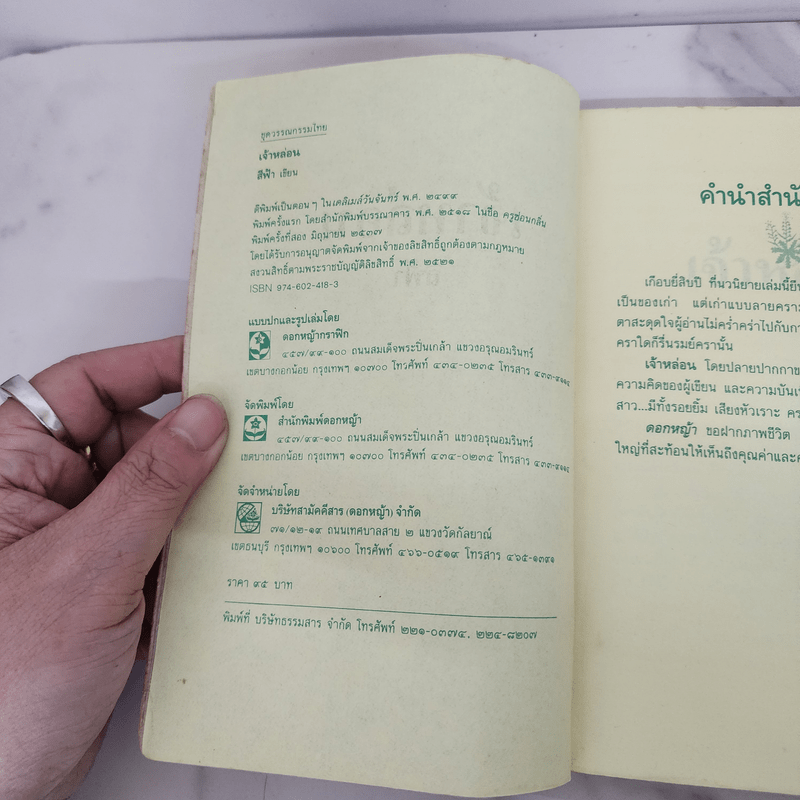 ชุดวรรณกรรมไทย
เจ้าหล่อน
สีฟ้า เขียน
ตีพิมพ์เป็นตอนๆ ในเดลิเมล์วันจันทร์ พ.ศ. ๒๔๙๙
พิมพ์ครั้งแรก โดยสำนักพิมพ์บรรณาคาร พ.ศ. ๒๕๑๘ ในชื่อ ครูซ่อนกลิ่น
พิมพ์ครั้งที่สอง มิถุนายน ๒๕๓๗
โดยได้รับการอนุญาตจัดพิมพ์จากเจ้าของลิขสิทธิ์ถูกต้องตามกฎหมาย
สงวนสิทธิ์ตามพระราชบัญญัติลิขสิทธิ์ พ.ศ. ๒๕๒๑
ISBN 974-602-418-3
แบบปกและรูปเล่มโดย
ดอกหญ้ากราฟิก
๔๕๗/๙๙-๑๐๐ ถนนสมเด็จพระปิ่นเกล้า แขวงอรุณอมรินทร์
เขตบางกอกน้อย กรุงเทพฯ ๑๐๗๐๐ โทรศัพท์ ๔๓๔-๐๒๓๕ โทรสาร
จัดพิมพ์โดย
สำนักพิมพ์ดอกหญ้า
๔๕๗/๙๙-๑๐๐ ถนนสมเด็จพระปิ่นเกล้า แขวงอรุณอมรินทร์
เขตบางกอกน้อย กรุงเทพฯ ๑๐๗๐๐ โทรศัพท์ ๔๓๔-๐๒๓๕ โทรสาร
จัดจำหน่ายโดย
บริษัทสามัคคีสาร (ดอกหญ้า) จำกัด
๗๑/๑๒-๑๙ ถนนเทศบาลสาย ๒ แขวงวัดกัลยาณ์
เขตธนบุรี กรุงเทพฯ ๑๐๖๐๐ โทรศัพท์ ๔๖๖-๐๕๑๙ โทรสาร ๔๖๕-๑๓๙๑
ราคา ๙๕ บาท
พิมพ์ที่ บริษัทธรรมสาร จำกัด โทรศัพท์ ๒๒๑-๐๓๗๔, ๒๒๔-๘๒๐๗
คำนำสำนั
เกือบยี่สิบปี ที่นวนิยายเล่มนี้ยืน
เป็นของเก่า แต่เก่าแบบลายคราม
ตาสะดุดใจผู้อ่านไม่คร่ำคร่าไปกับกา
คราใดก็รื่นรมย์ครานั้น
เจ้าหล่อน โดยปลายปากกาข
ความคิดของผู้เขียน และความบันเ
สาว...มีทั้งรอยยิ้ม เสียงหัวเราะ คร
ดอกหญ้า ขอฝากภาพชีวิต
ใหญ่ที่สะท้อนให้เห็นถึงคุณค่าและค